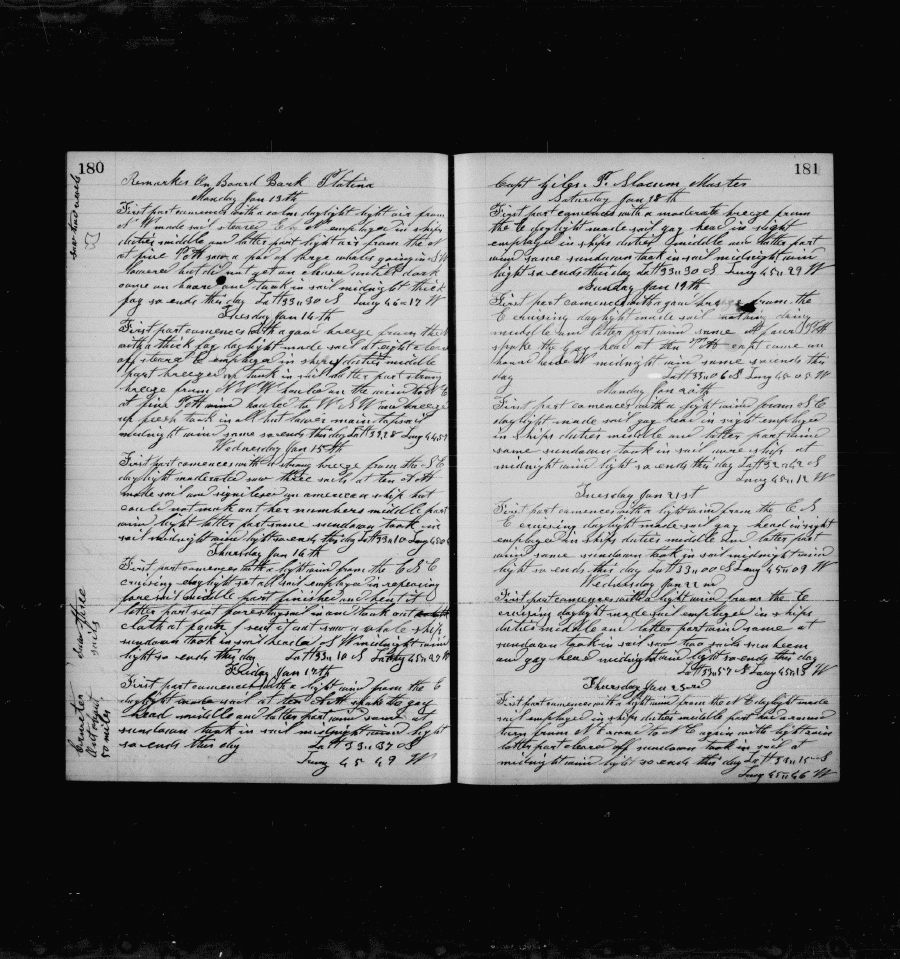 180
Remarks On Board Bark Platina
Monday Jan 13th
First part comences with a calm daylight light air from
N W made sail steared E by N employed in ships
duties middle and latter part light air from the N
at five P M saw a pod of large whales going S W
lowered but did not get an eleven untill dark
came on board and took in sail midnight thick
fog so ends this day Latt 33 " 30 S Long 46 " 17 W
Tuesday Jan 14th
First part comences with a good breeze from the N
with a thick fog daylight made sail at eight clear
off steared E employed in ships duties middle
part breezed up took in sail latter part strong
breeze from N N W hauled on the wind to N E
at five P M wind hauled to W S W and breezed
up fresh took in all but lower main topsail
midnight wind same so ends this day Latt 33, 28 Long 44 57
Wednesday Jan 15th
First part comences with a strong breeze from the S E
daylight moderate saw three sails at ten A M
made sail and signilised an american ship but
could not make out her numbers middle part
wind light latter part same sundown took in
sail midnight wind light so ends this day Latt 33 10 Long 45 0
Thursday Jan 16th
First part comences with a light wind from the E S E
cruising daylight set all sail employed in repearing
fore sail middle part finished and bent it
latter part sent foretopsail in and took out
cloth at four saw a whale ship
sundown took in sail headed S W midnight wind
light so ends this day Latt 33 " 10 S Long 45 " 27 W
Friday Jan 17th
First part comences with a light wind from the E
daylight made sail at ten A M spoke the gay
head middle and latter part wind same at
sundown took in sail midnight wind light
so ends this day Latt 33 " 37 S
Long 45 49 W
saw three
sails
50 miles
181
Capt Gilbs. T. Slocum Master
Saturday Jan 18th
First part comences with a moderate breeze from
the E daylight made sail gay head in sight
employed in ships duties middle and latter part
wind same sundown took in sail midnight wind
light so ends this day Latt 33 " 30 S Long 45 " 29 W
Sunday Jan 19th
First part comences with a good breeze from the
E cruising daylight made sail nothing doing
middle and latter part wind same at four P M
spoke the Gay head at ten P M capt came on
board midnight wind same so ends this
day Latt 33 " 06 S Long 45 " 05 W
Monday Jan 20th
First part comences with a light wind from S E
daylight made sail gay head in sight employed
in ships duties middle and latter part wind
same sundown took in sail wore ship at
midnight wind light so ends this day Latt 32 " 42 S
Long 45 " 12 W
Tuesday Jan 21st
First part comences with a light wind from the E S
E cruising daylight made sail gay head in sight
employed in ships duties middle and latter part
wind same sundown took in sail midnight wind
light so ends this day Latt 33 " 00 S Long 45 " 09 W
Wednesday Jan 22nd
First part comences with a light wind from the E
cruising daylight made sail employed in ships
duties middle and latter part wind same at
sundown took in sail saw two sails sunbeem
and gay head midnight wind light so ends this day
Latt 33 " 57 S Long 45 " 13 W
Thursday Jan 23rd
First part comences with a light wind from the N E daylight made
sail employed in ships duties middle part had a round
turn from N E around to N E again with light rain
latter part cleared off sundown took in sail at
midnight wind light so ends this day Latt 33 " 15 S
Long 45 " 46 W